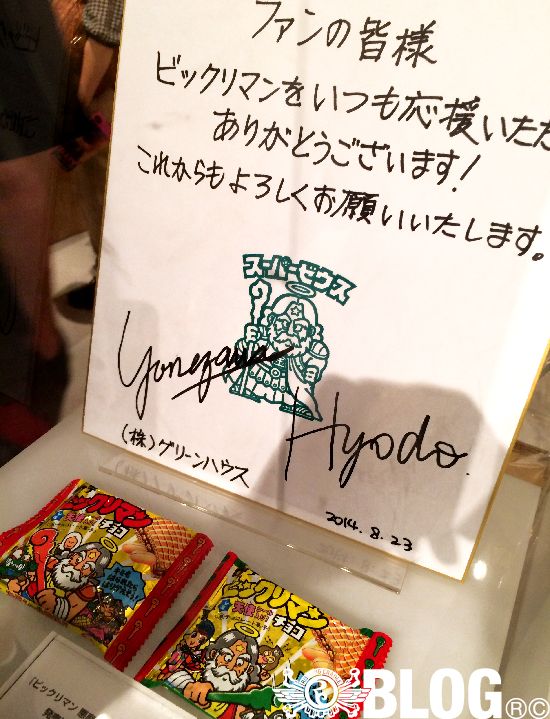 ファンの皆様
ビックリマンをいつも応援いただ
ありがとうございます!
これからもよろしくお願いいたします。
スーパーゼウス
Yonezawa
Hyodo.
(株)グリーンハウス
2014.8.23
ビックリマン
チョコ
ビックリマン
天使
チョコ
「ビックリマン 悪
BLOG R©